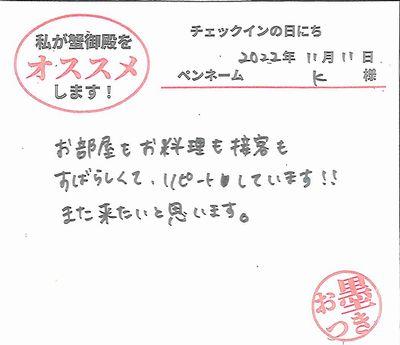 私が蟹御殿を
オススメ
します！
チェックインの日にち
2022年 11月 11日
ペンネーム K 様
お部屋もお料理も接客も
すばらしくて、リピートしています!!
また来たいと思います。
お墨つき